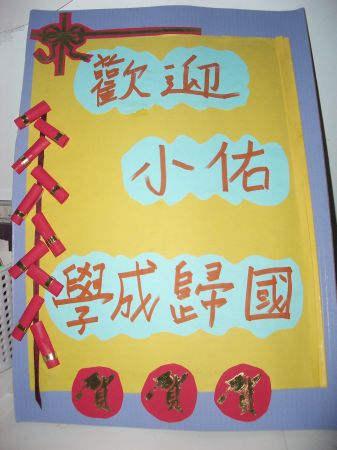 歡迎
小佑
學成歸國
賀 賀 賀